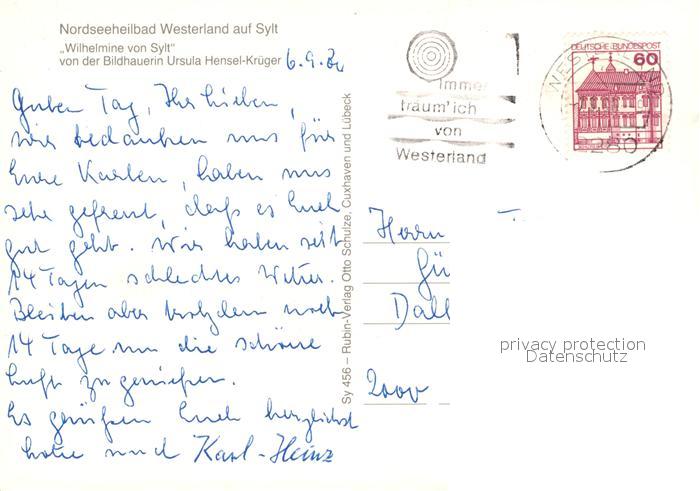 Nordseeheilbad Westerland auf Sylt
„Wilhelmine von Sylt"
von der Bildhauerin Ursula Hensel-Krüger
Guten Tag, Ihr Lieben,
wir bedanken uns für
Eure Karten, haben uns
sehr gefreut, daß es Euch
gut geht. Wir haben seit
14 Tagen schlechtes Wetter.
Bleiben aber trotzdem noch
14 Tage um die schöne
Luft zu genießen.
Es grüßen Euch herzlichst
und Karl-Heinz
Sy 456 – Rubin-Verlag Otto Schulze, Cuxhaven und Lübeck
Immer
träum' ich
von
Westerland
DEUTSCHE BUNDESPOST
60
2280
Herrn
Gü
Dall
2000
privacy protection
Datenschutz